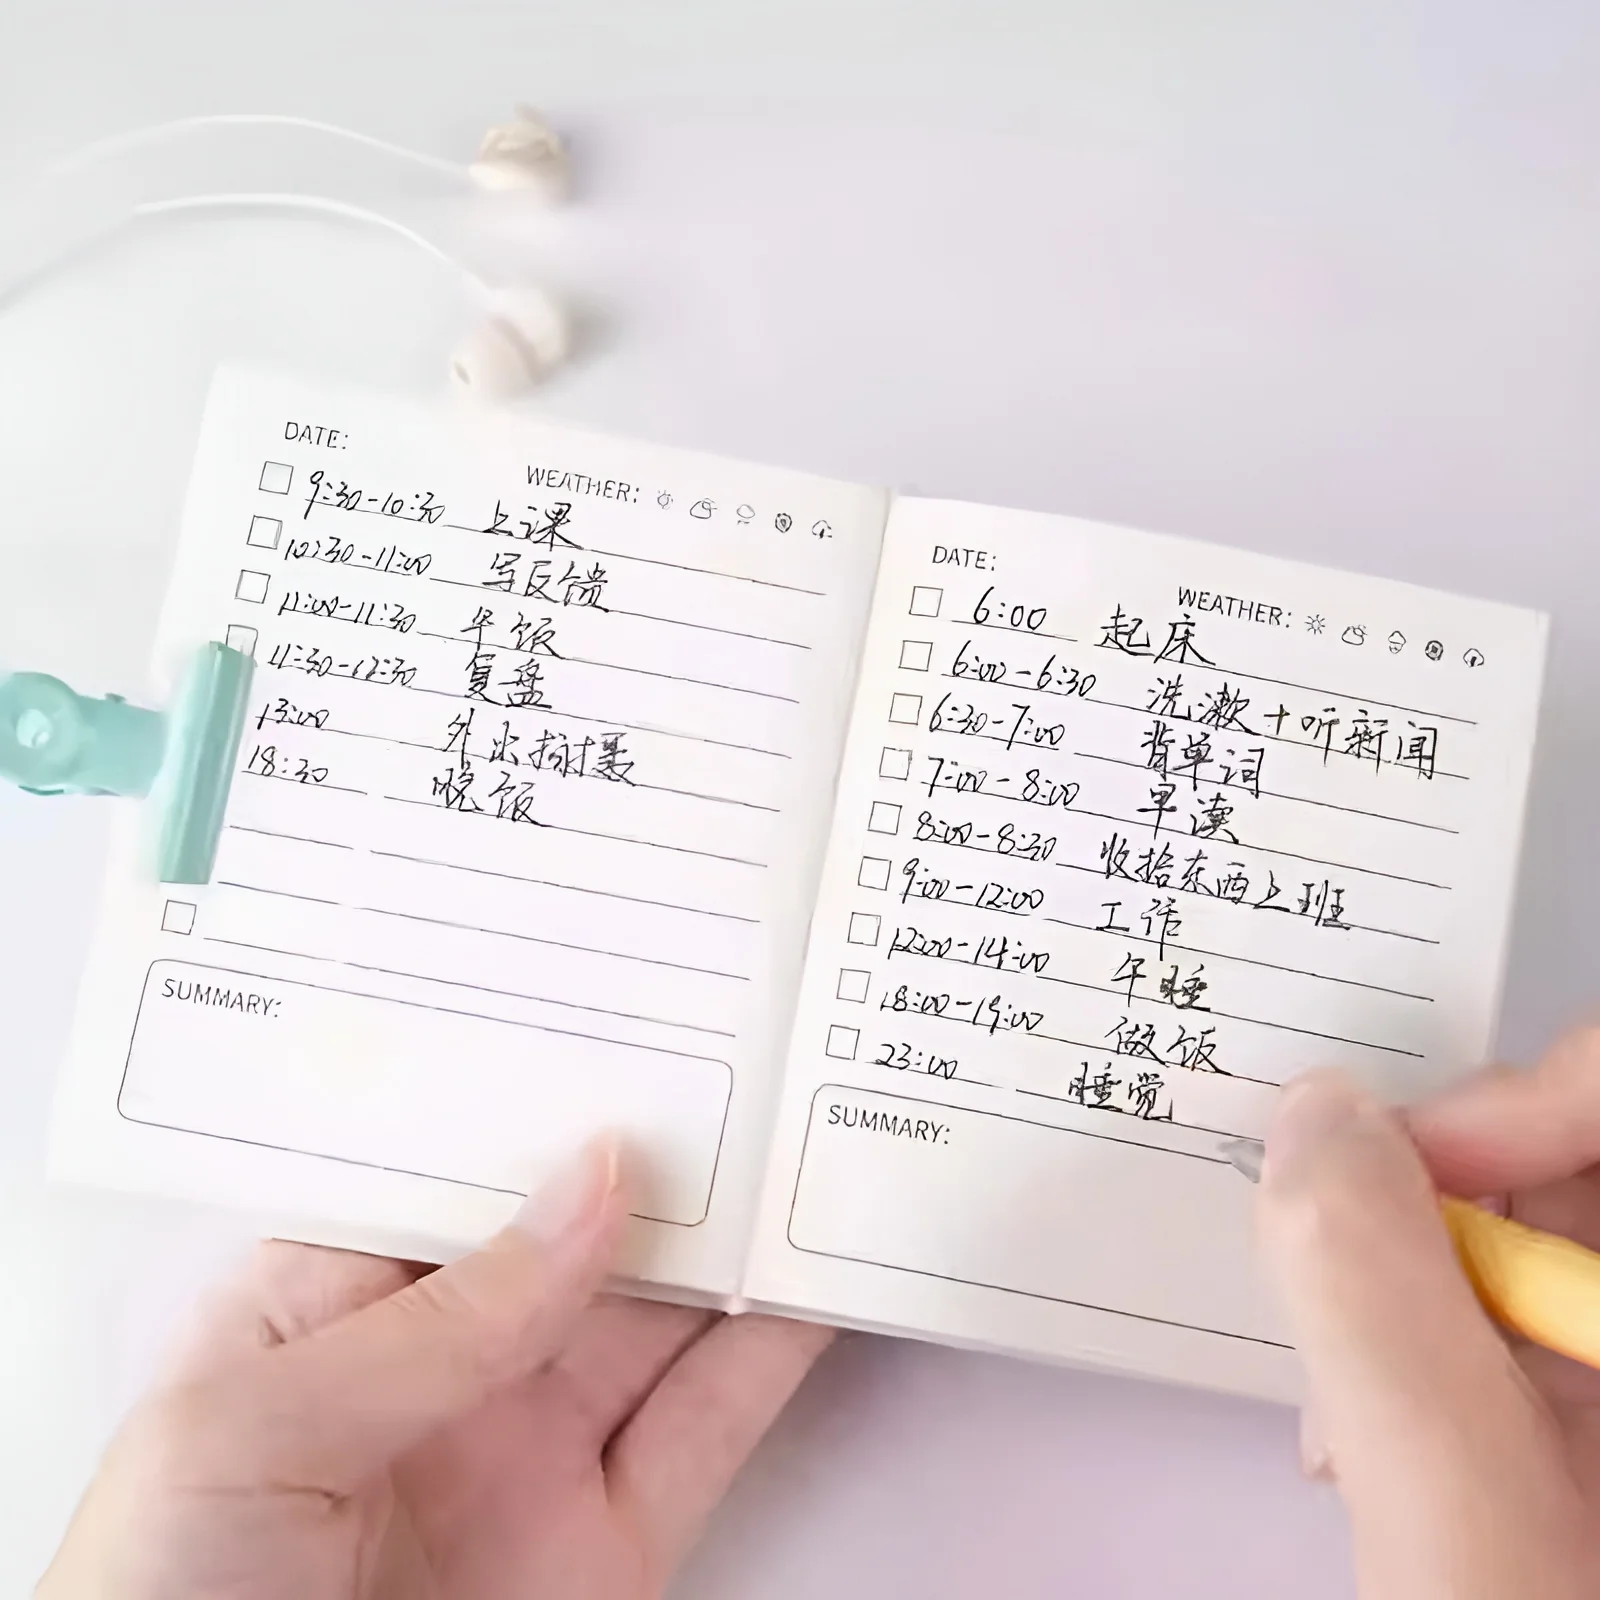 DATE:
WEATHER:
9:30-10:30 上课
10:30-11:00 写反馈
11:00-11:30 午饭
11:30-12:30 复盘
13:00 外出拍摄
18:30 晚饭
SUMMARY:
DATE:
WEATHER:
6:00 起床
6:00-6:30 洗漱+听新闻
6:30-7:00 背单词
7:00-8:00 早读
8:00-8:30 收拾东西上班
9:00-12:00 工作
12:00-14:00 午睡
18:00-19:00 做饭
23:00 睡觉
SUMMARY: